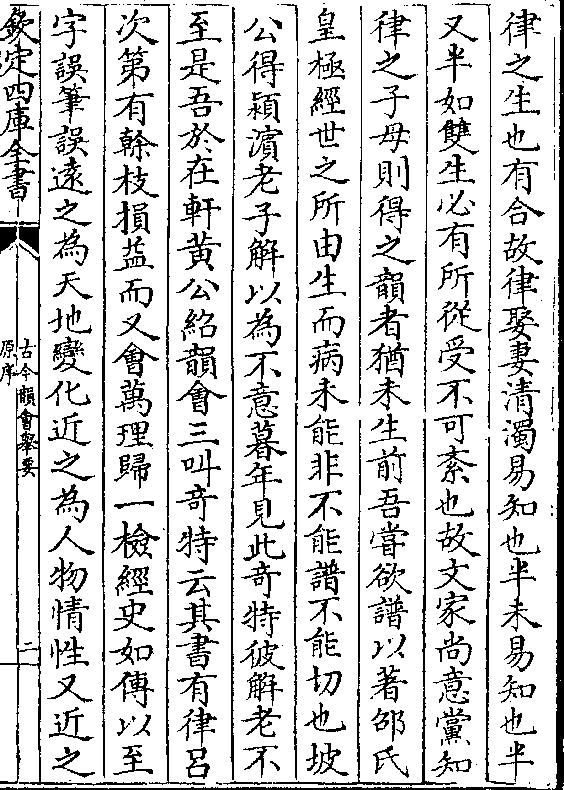 律之生也有合故律娶妻清濁易知也半未易知也半
又半如雙生必有所從受不可紊也故文家尚意黨知
律之子母則得之韻者猶未生前吾嘗欲譜以著邵氏
皇極經世之所由生而病未能非不能譜不能切也坡
公得潁濱老子解以為不意暮年見此奇特彼解老不
至是吾於在軒黃公紹韻會三叫奇特云其書有律呂
次第有幹枝損益而又會萬理歸一檢經史如傳以至
字誤筆誤遠之為天地變化近之為人物情性又近之
欽定四庫全書
古今韻會舉要
原序
二